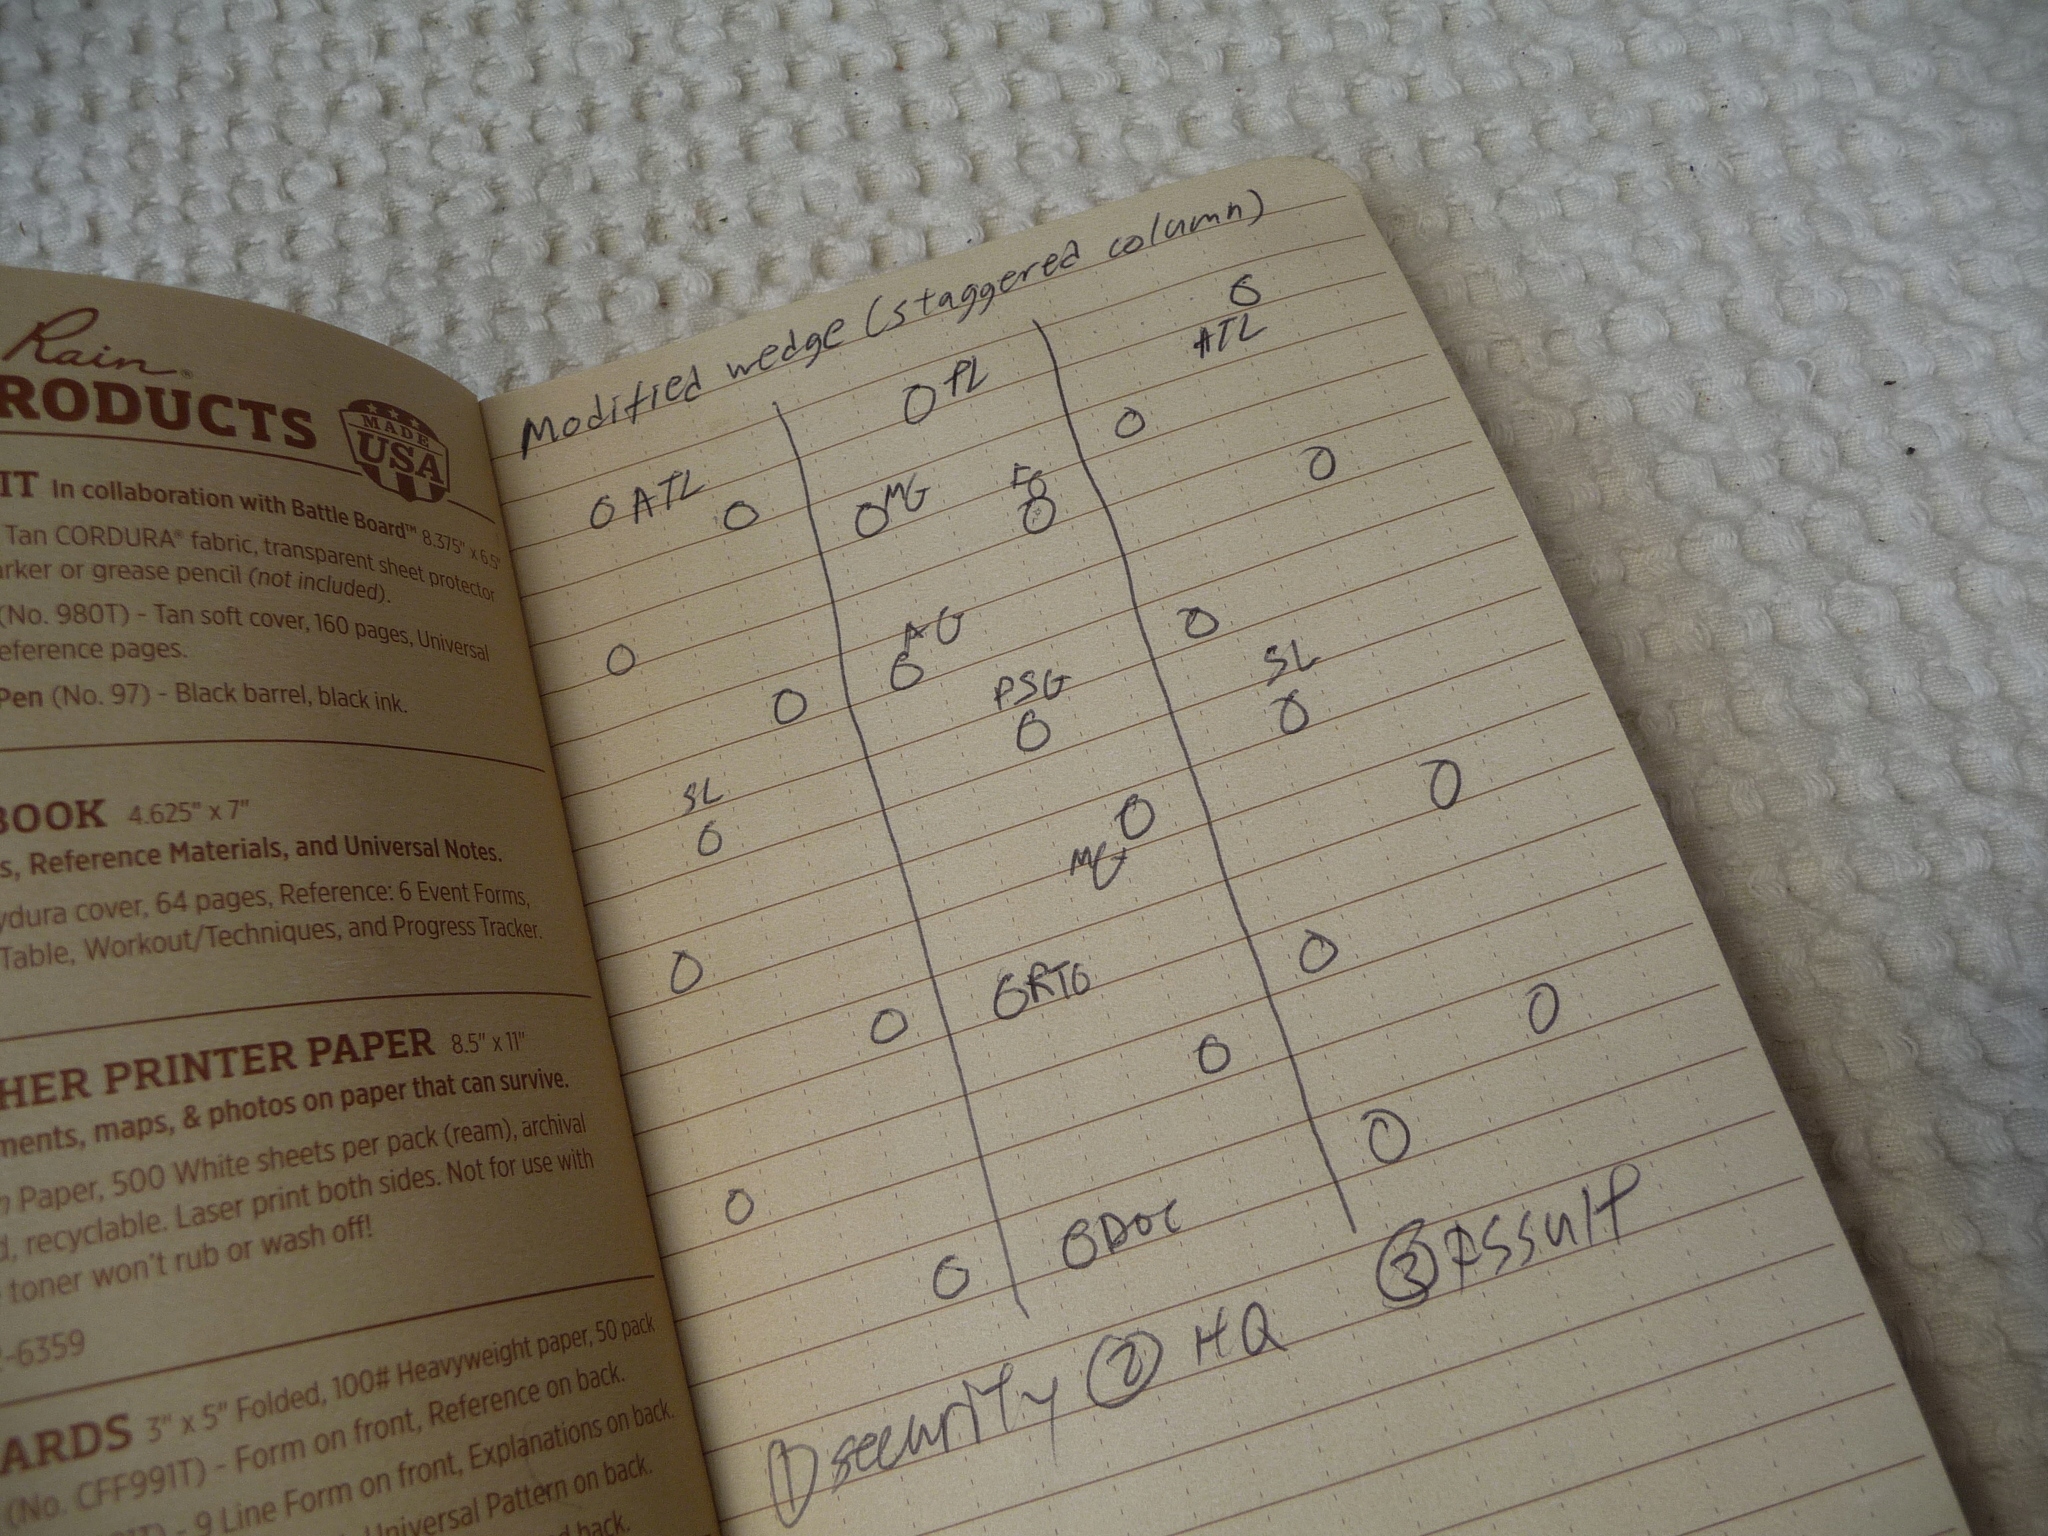 Rain®
RODUCTS
MADE
USA
IT In collaboration with Battle Board™ 8.375" x 6.5"
Tan CORDURA® fabric, transparent sheet protector
rker or grease pencil (not included).
(No. 980T) - Tan soft cover, 160 pages, Universal
eference pages.
Pen (No. 97) - Black barrel, black ink.
BOOK 4.625" x 7"
s, Reference Materials, and Universal Notes.
ydura cover, 64 pages, Reference: 6 Event Forms,
Table, Workout/Techniques, and Progress Tracker.
HER PRINTER PAPER 8.5" x 11"
ments, maps, & photos on paper that can survive.
Paper, 500 White sheets per pack (ream), archival
d, recyclable. Laser print both sides. Not for use with
toner won't rub or wash off!
-6359
ARDS 3" x 5" Folded, 100# Heavyweight paper, 50 pack
(No. CFF991T) - Form on front, Reference on back.
- 9 Line Form on front, Explanations on back.
Universal Pattern on back.
back.
Modified wedge (staggered column)
ATL
PL
ATL
MG
FO
AG
PSG
SL
SL
MG
RTO
DOC
① security ② HQ ③ Assult